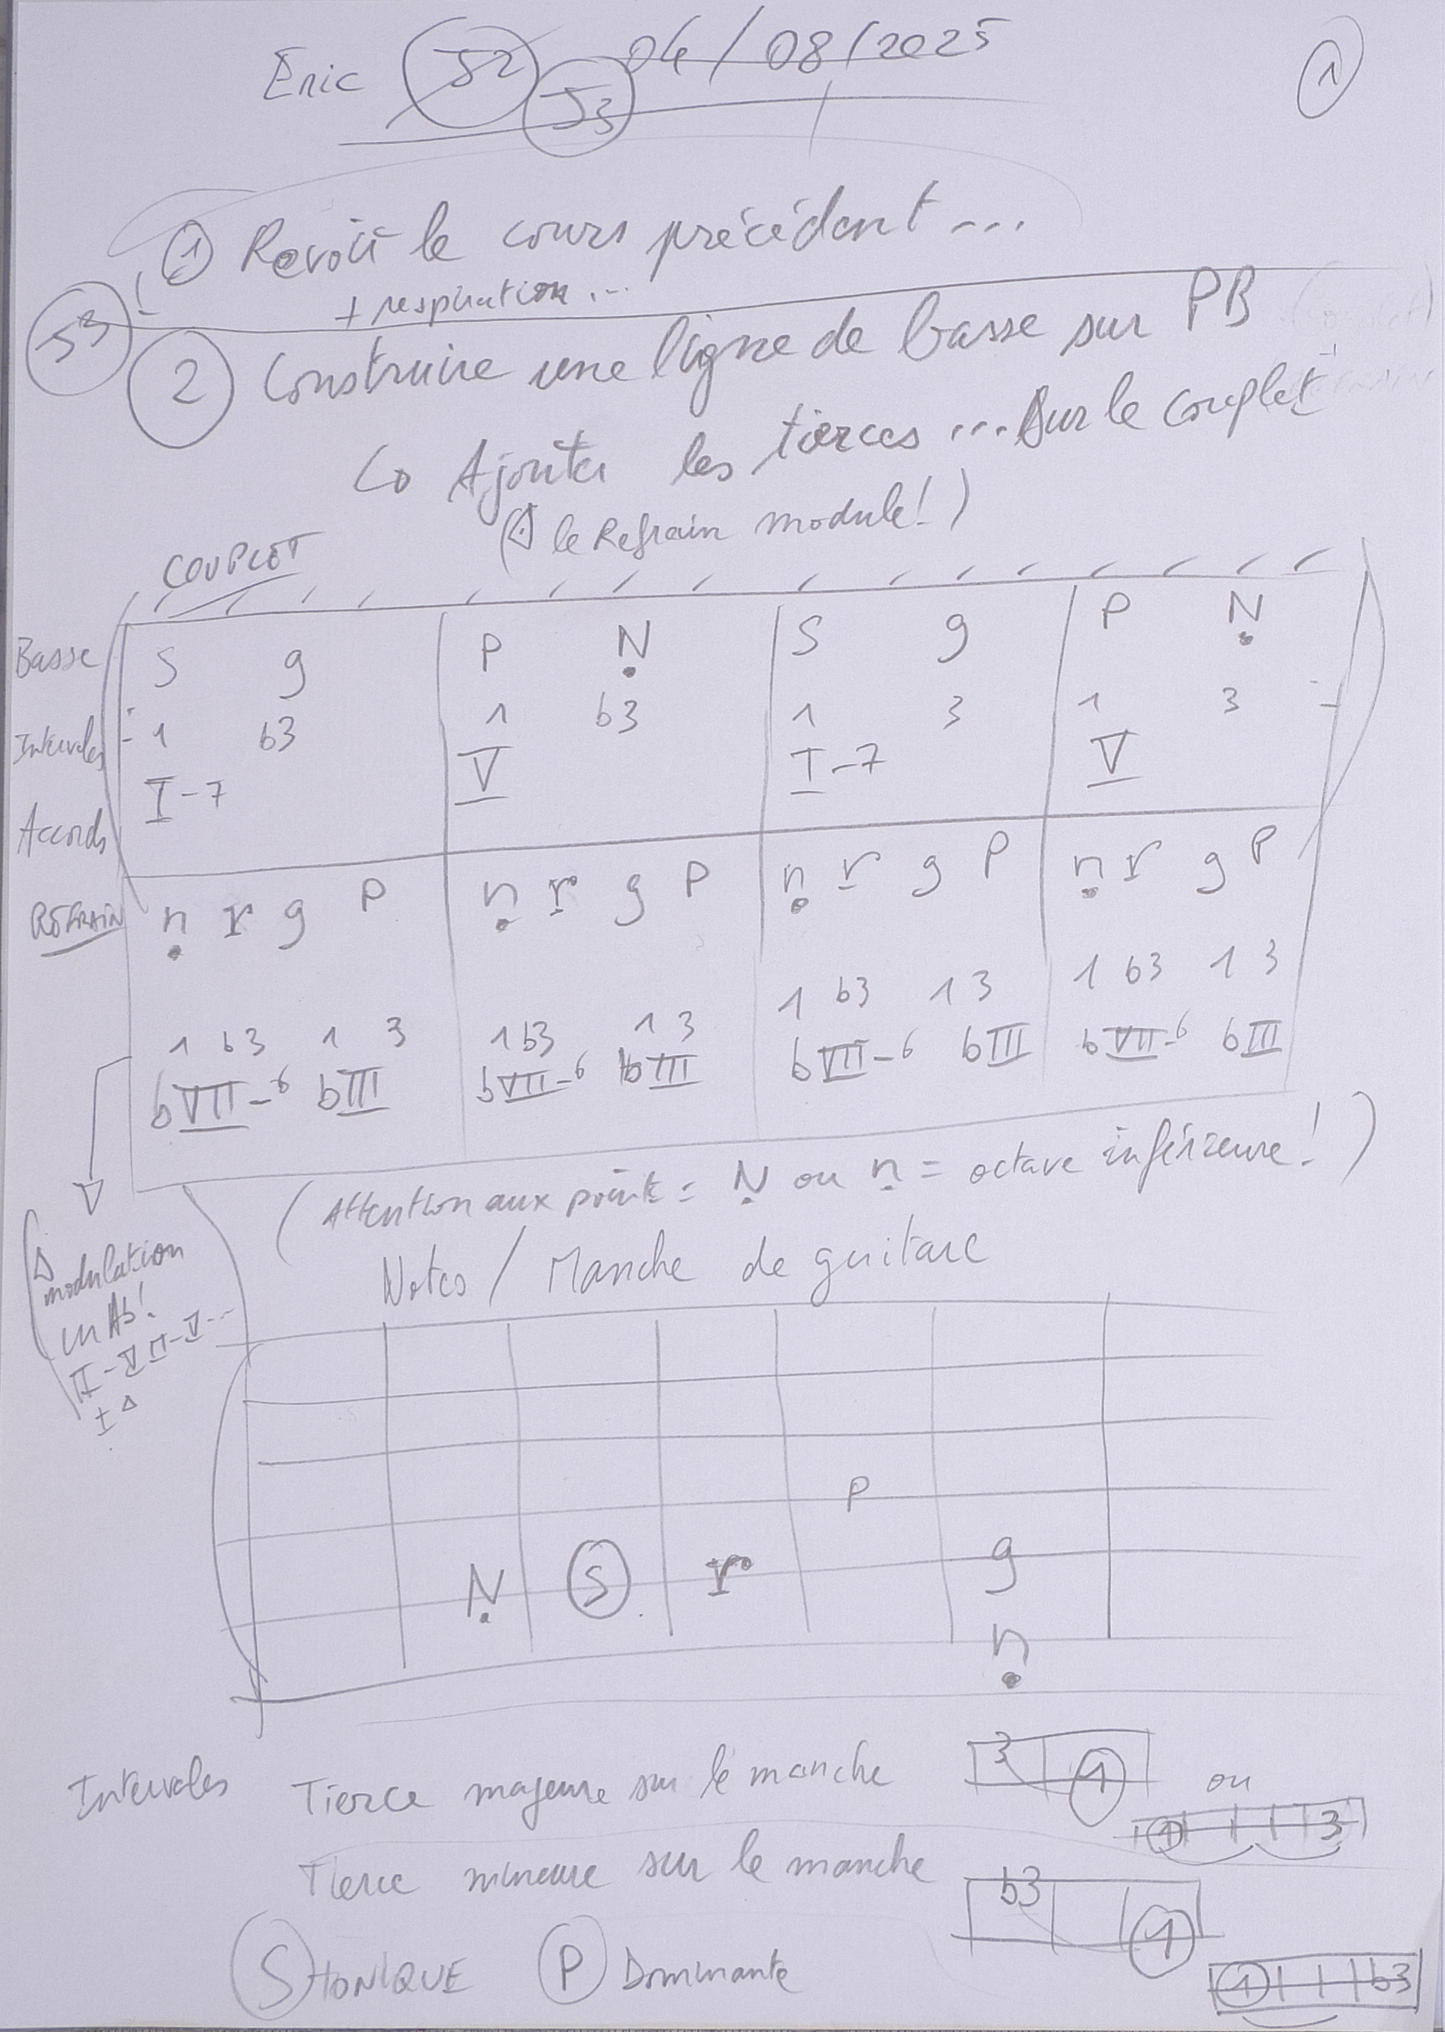 Eric 52 53 04/08/2025 1
① Revoir le cours précédent...
+ respiration...
53
② Construire une ligne de basse sur PB
↳ Ajouter les tierces ... sur le couplet
(⚠ le Refrain module!)
COUPLET
Basse S g | P Ṇ | S g | P Ṇ
Intervales 1 b3 | 1 b3 | 1 3 | 1 3
Accords I-7 | V | I-7 | V
REFRAIN ṇ r g P | ṇ r g P | ṇ r g P | ṇ r g P
1 b3 1 3 | 1 b3 1 3 | 1 b3 1 3 | 1 b3 1 3
bVII-6 bIII | bVII-6 bIII | bVII-6 bIII | bVII-6 bIII
(Attention aux points = Ṇ ou ṇ = octave inférieure!)
⚠ modulation
en Ab!
II-V II-V...
I Δ
Notes / Manche de guitare
P
Ṇ S r g
ṇ
Intervales Tierce majeure sur le manche 3 1 ou 1 3
Tierce mineure sur le manche b3 1
1 b3
S TONIQUE P Dominante